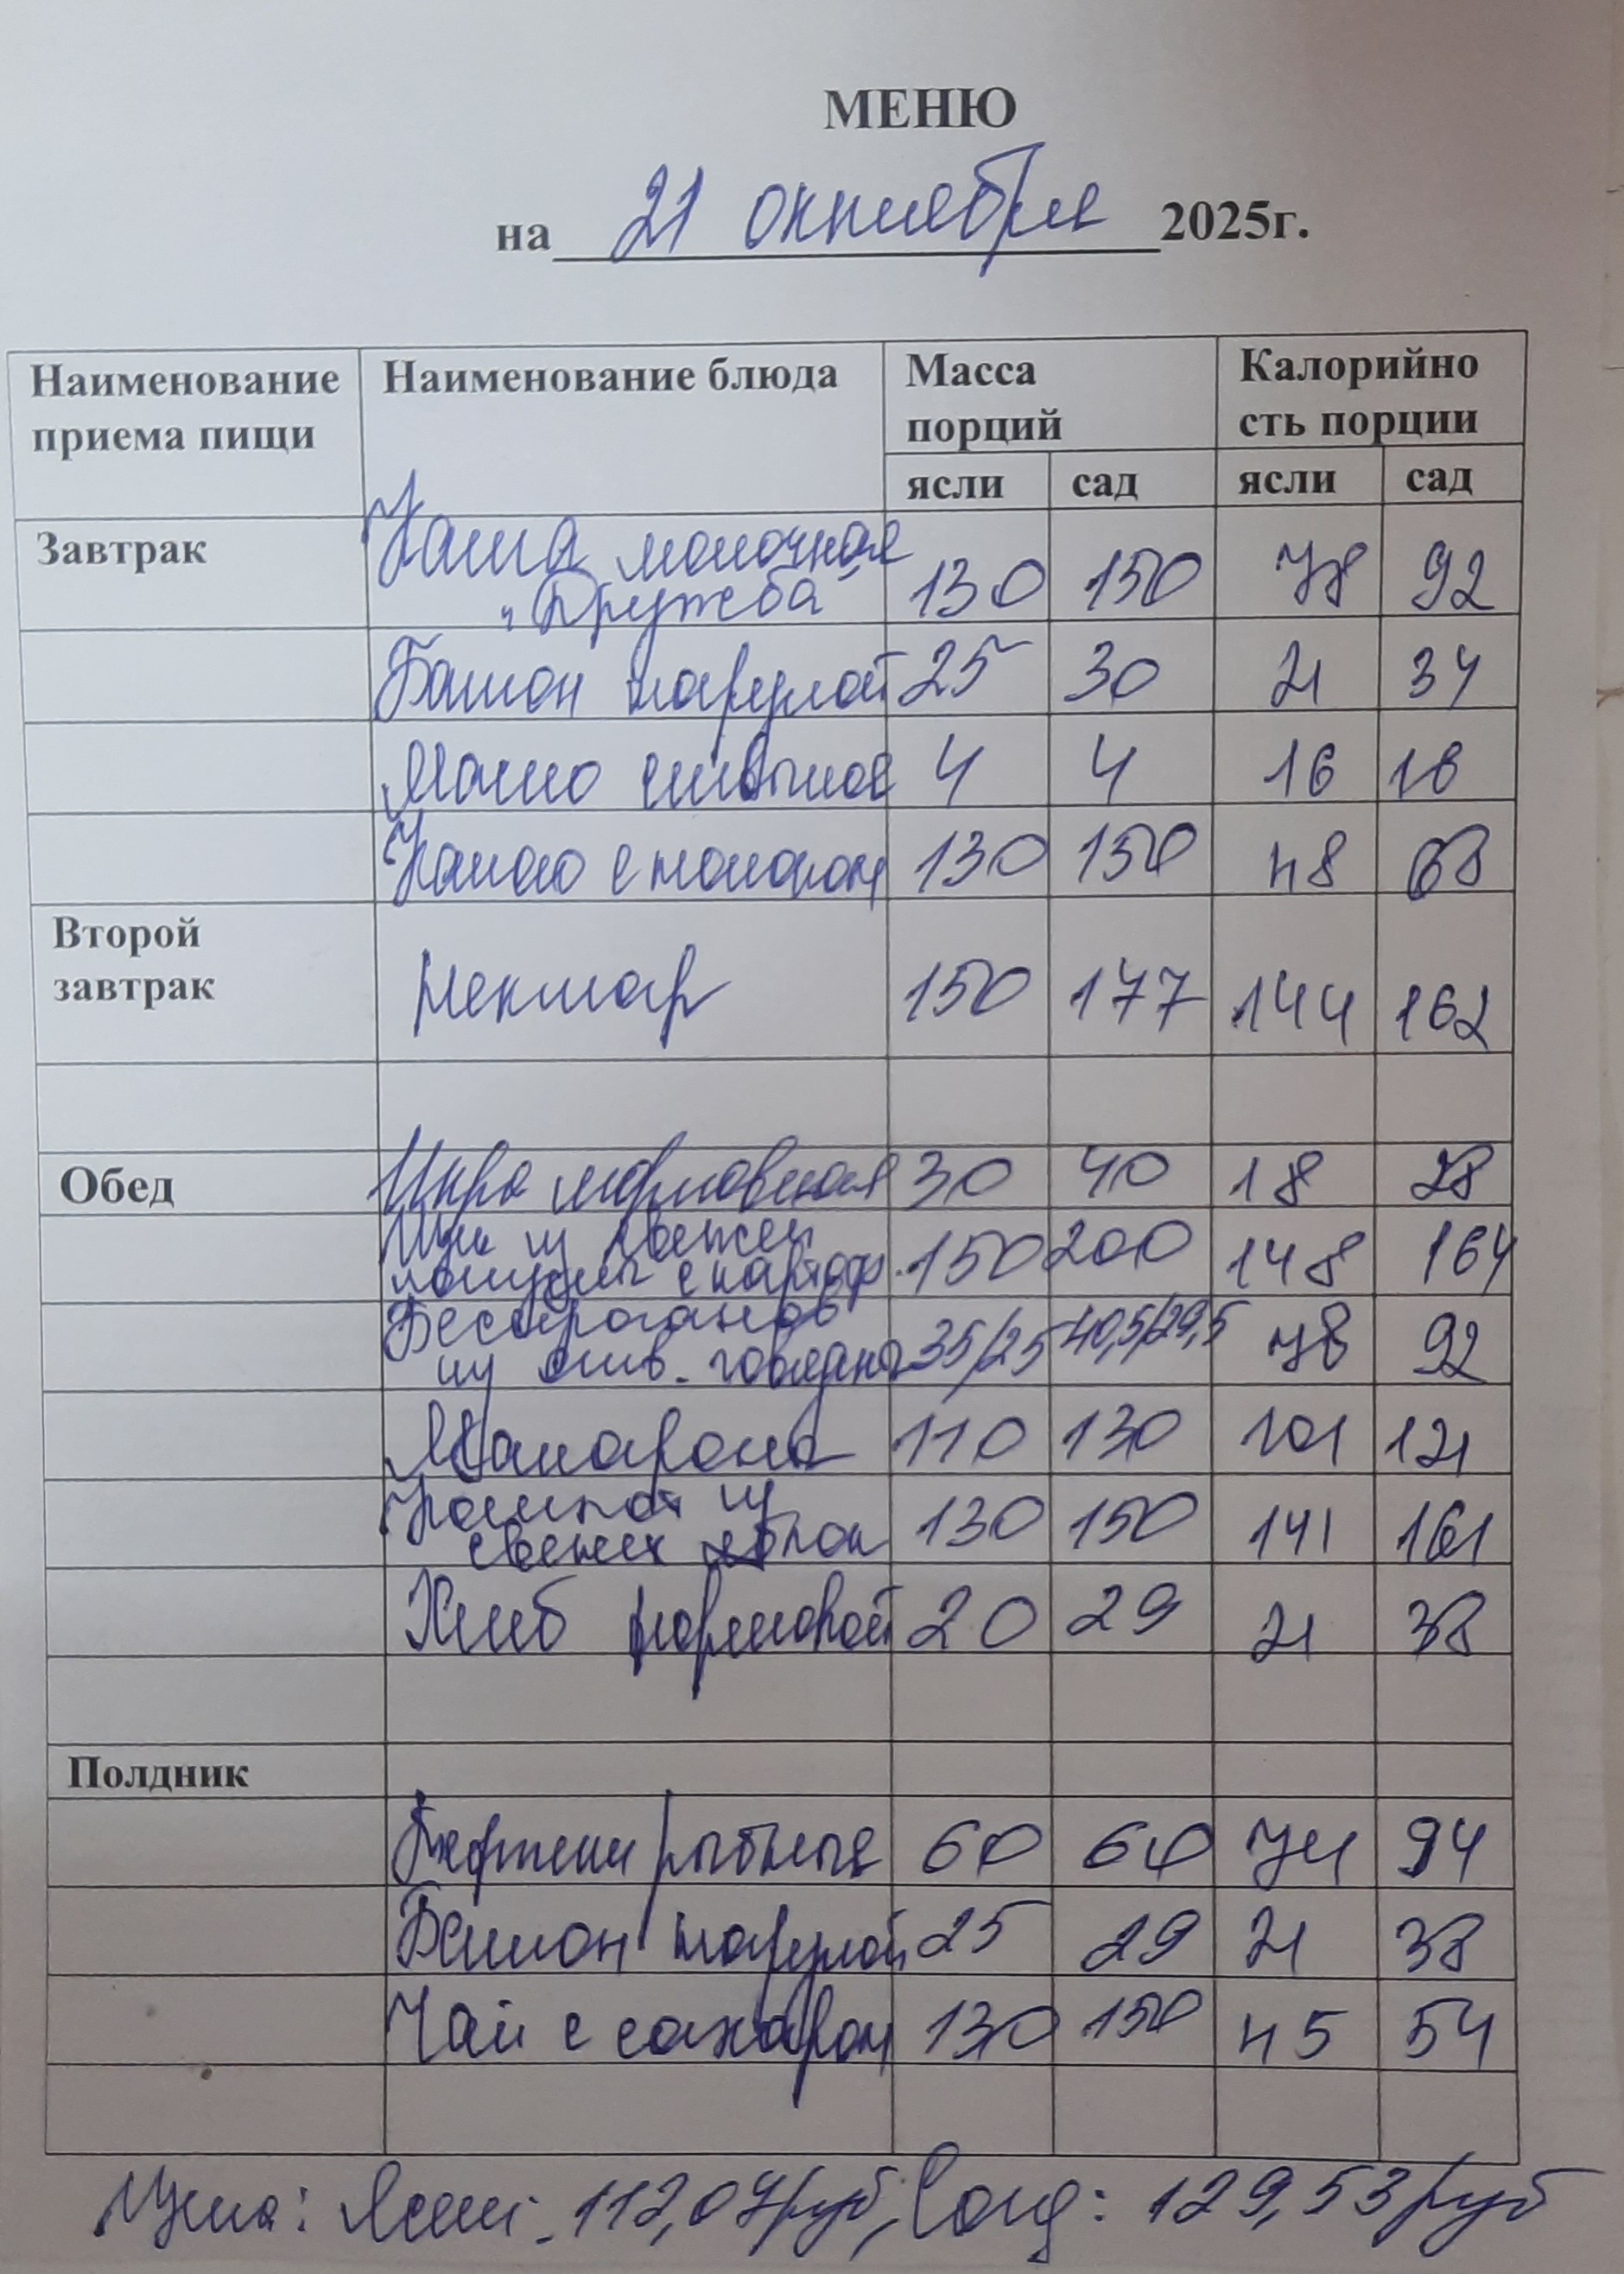 МЕНЮ
на 21 октября 2025г.
Наименование приема пищи Наименование блюда Масса порций Калорийно сть порции
ясли сад ясли сад
Завтрак Каша молочная
"Дружба" 130 150 78 92
Батон нарезной 25 30 21 34
Масло сливочное 4 4 16 16
Какао с молоком 130 150 48 68
Второй завтрак Нектар 150 177 144 162
Обед Икра морковная 30 40 18 28
Щи из свежей
капусты с картоф. 150 200 148 164
Бефстроганов
из отв. говядины 35/25 40,5/29,5 78 92
Макароны 110 130 101 121
Компот из
свежих яблок 130 150 141 161
Хлеб 20 29 21 38
Полдник
рыбные 60 60 74 94
Батон нарезной 25 29 21 38
Чай с сахаром 130 150 45 54
Цена: Ясли - 112,04 руб, Сад: 129,53 руб